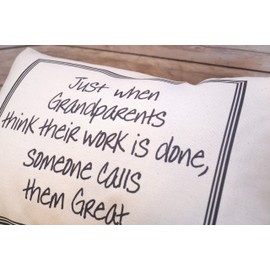 Just when
Grandparents
think their work is done,
someone calls
them Great